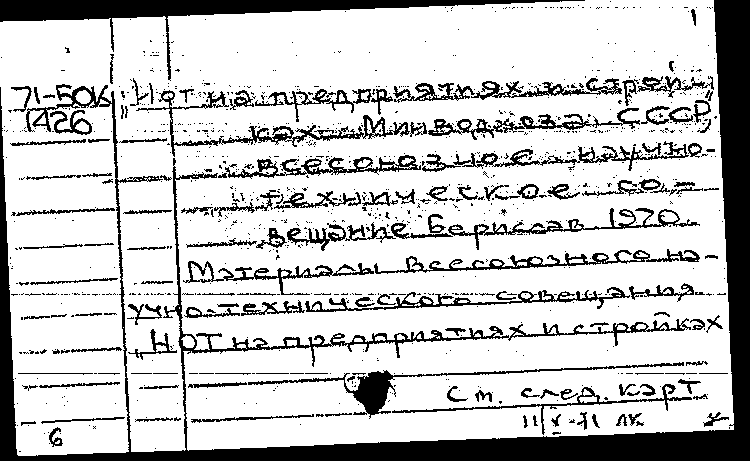 1
71-50К „НОТ на предприятиях и строй-
1426 ках Минводхоза СССР,"
всесоюзное научно-
техническое со-
вещание Берислав 1970.
Материалы Всесоюзного на-
учно-технического совещания
„НОТ на предприятиях и стройках
См. след. карт
11/X-71 ЛК
6